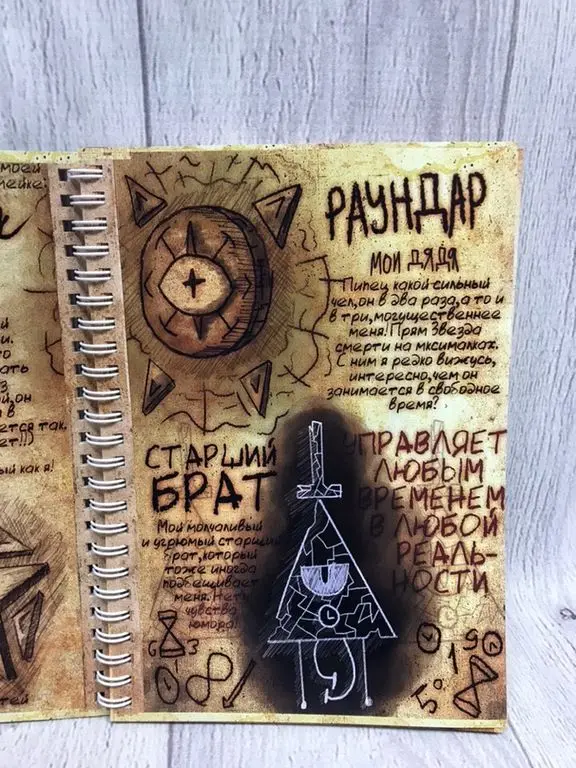 моей
мейке:
й
и.
то
ать
з
й,он
в
ется так.
ет!!)
ый как я!
тей
РАУНДАР
мой дядя
Пипец какой сильный
чел,он в два раза,а то и
в три,могущественнее
меня!Прям Звезда
смерти на мксималках.
С ним я редко вижусь,
интересно,чем он
занимается в свободное
время?
СТАРШИЙ
БРАТ
Мой молчаливый
и угрюмый старший
брат,который
тоже иногда
подбешивает
меня.Нету
чувства
юмора!
УПРАВЛЯЕТ
ЛЮБЫМ
ВРЕМЕНЕМ
В ЛЮБОЙ
РЕАЛЬ-
НОСТИ
6 3
1 9
5°